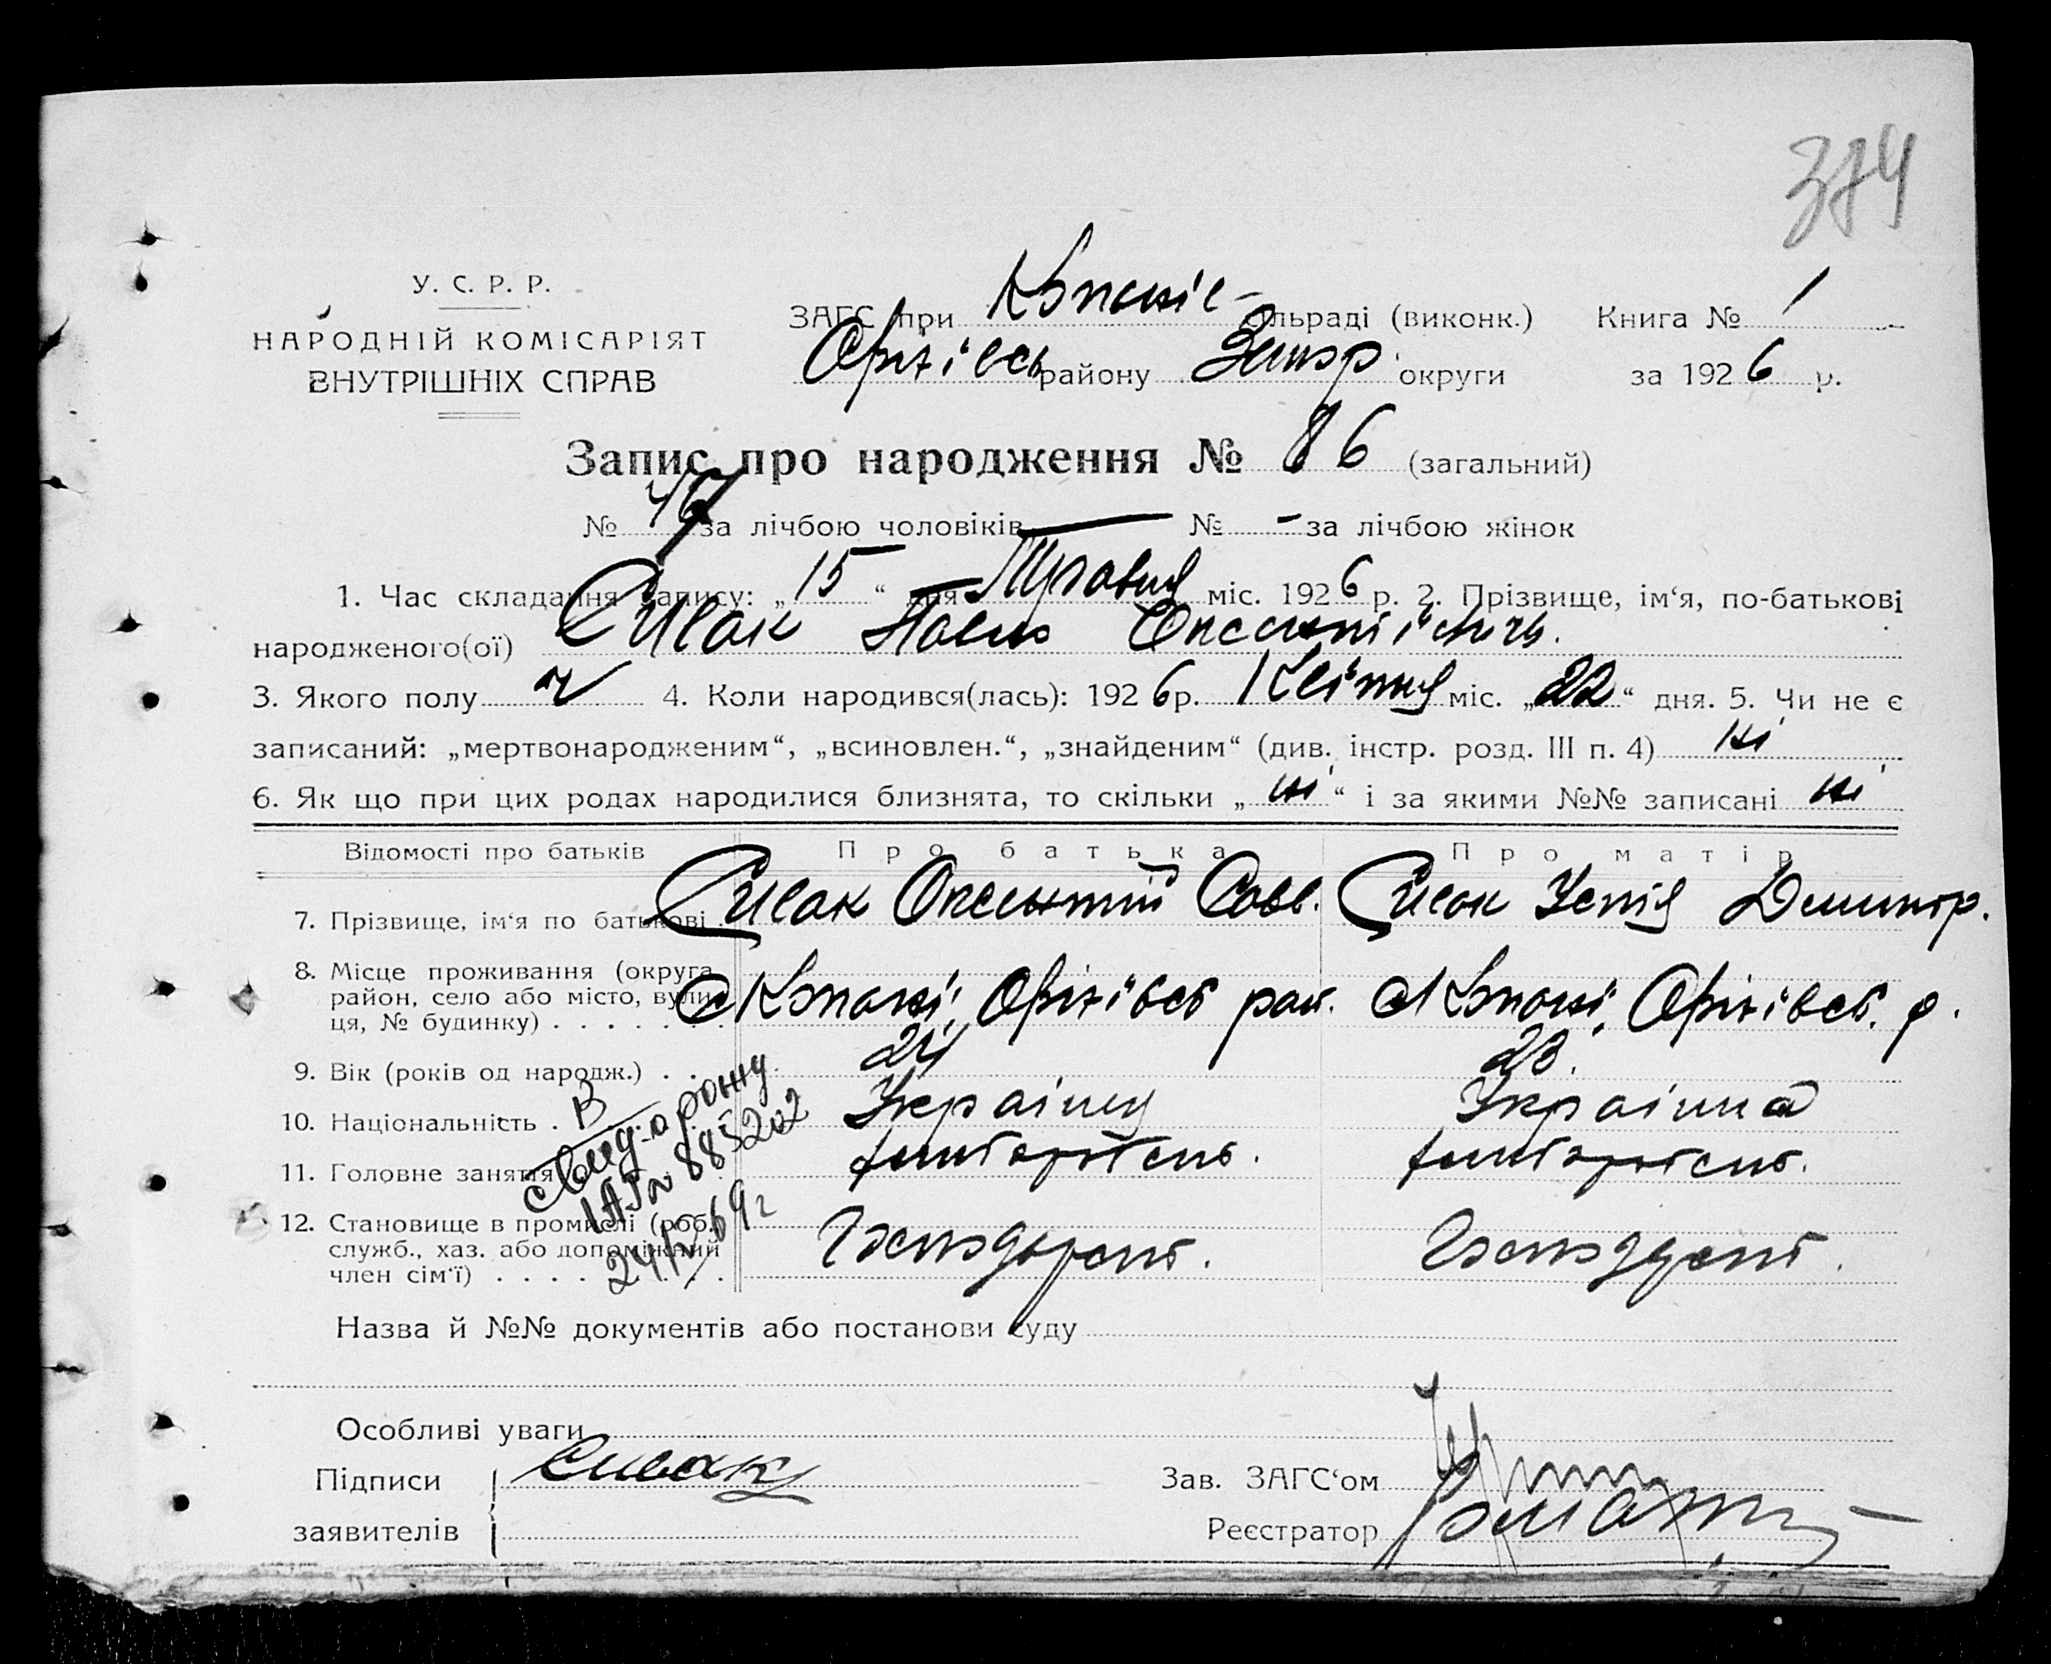 374
У. С. Р. Р.
НАРОДНІЙ КОМІСАРІЯТ
ВНУТРІШНІХ СПРАВ
ЗАГС при Копанів- сільраді (виконк.) Книга № 1
Оріхівськ району Запор. округи за 1926 р.
Запис про народження № 86 (загальний)
№ 47 за лічбою чоловіків № - за лічбою жінок
1. Час складання запису: „15“ дня Травня міс. 1926 р. 2. Прізвище, ім‘я, по-батькові
народженого(ої) Сивак Павло
3. Якого полу ч 4. Коли народився(лась): 1926 р. Квітня міс. „22“ дня. 5. Чи не є
записаний: „мертвонародженим“, „всиновлен.“, „знайденим“ (див. інстр. розд. III п. 4) ні
6. Як що при цих родах народилися близнята, то скільки „ні“ і за якими №№ записані ні
Відомості про батьків Про батька Про матір
7. Прізвище, ім‘я по батькові Сивак Оксентій Савв. Сивак Дмитр.
8. Місце проживання (округа
район, село або місто, вули- с Копані, Оріхівськ рай. с Копані, Оріхівськ. р.
ця, № будинку) . . . . . . .
9. Вік (років од народж.) . . 24 23.
10. Національність . Українц Українка
11. Головне заняття хліборобств. хліборобств.
12. Становище в промислі (роб.,
служб., хаз. або допоміжний
член сім‘ї) . . . .
В
свид. о рожд
885202
69 г
Назва й №№ документів або постанови суду
Особливі уваги
Підписи Сивак Зав. ЗАГС‘ом
заявителів Реєстратор